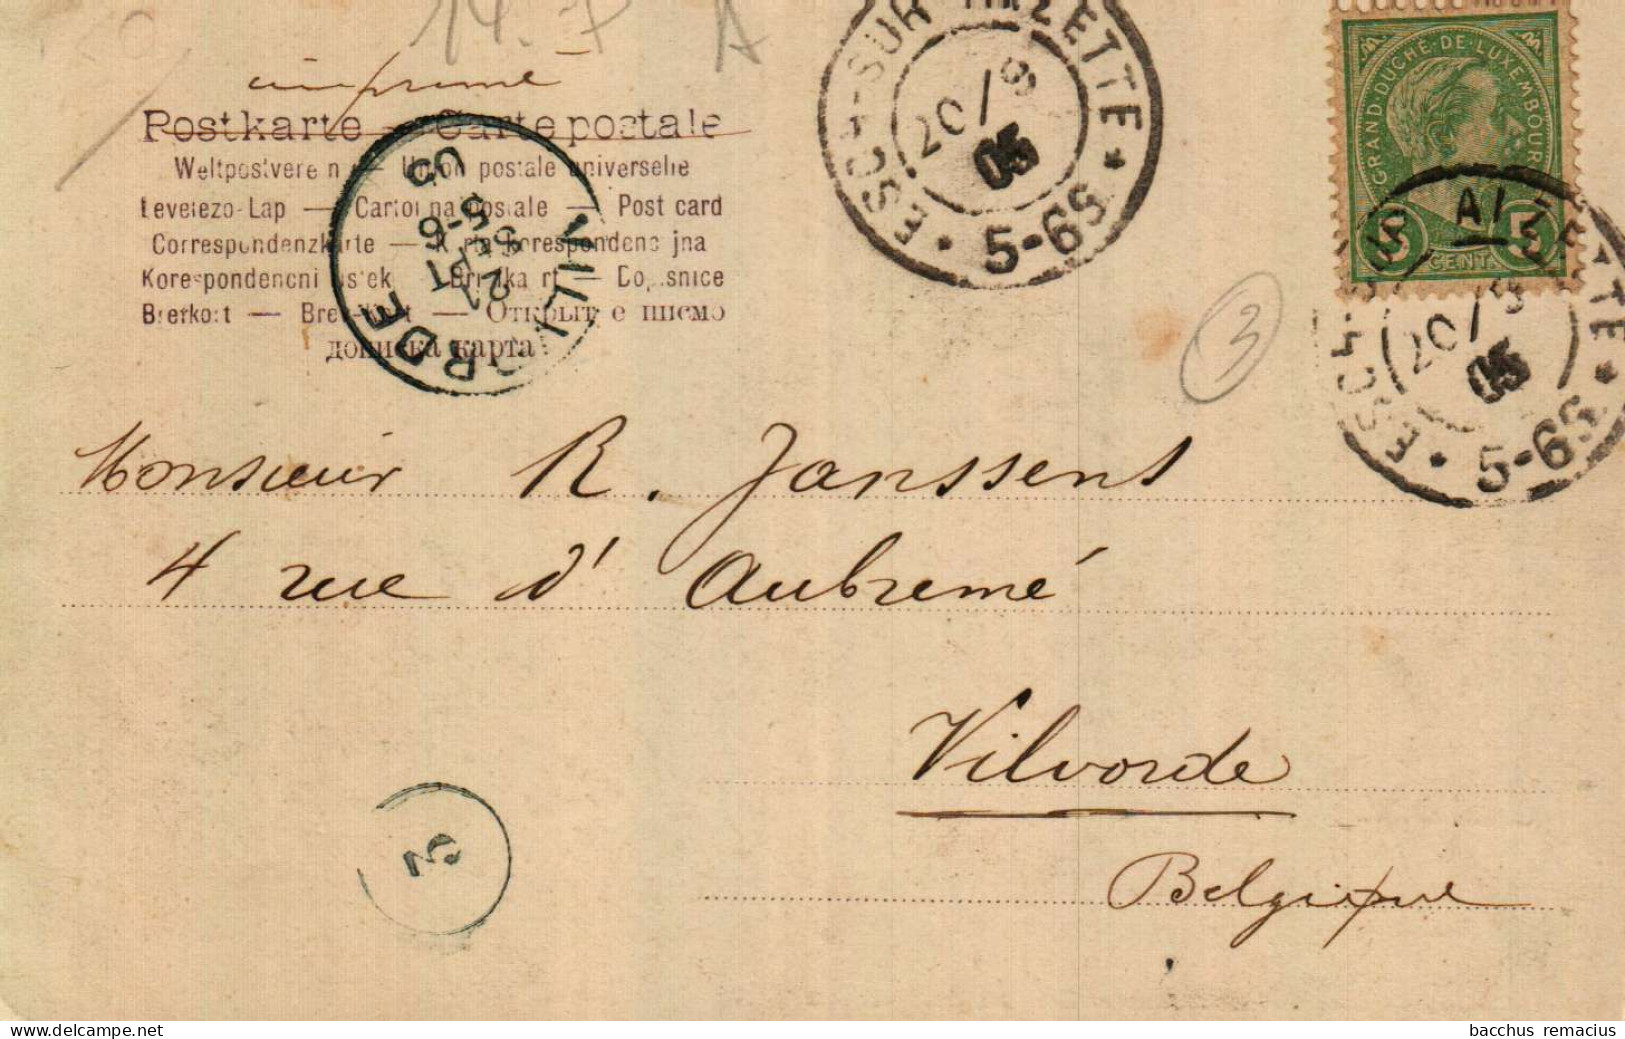 14. 7 A
imprimé
Postkarte — Carte postale
Weltpostverein — Union postale universelle
Levelezo-Lap — Cartolina postale — Post card
Correspondenzkarte — Karta korespondencyjna
Korespondencni listek — Brefkart — Dopisnice
Brefkort — Brevkort — Открытое письмо
дописка карта
VILVORDE
21
SEPT
5-6
05
ESCH-SUR-ALZETTE
20/9
05
5-6S
GRAND-DUCHÉ-DE-LUXEMBOURG
5 CENT. 5
A1
ESCH-SUR-ALZETTE
20/9
05
5-6S
3
Monsieur R. Janssens
4 rue d'Aubremé
Vilvorde
Belgique
2
bacchus remacius